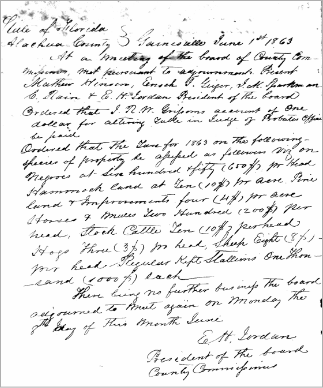 State of Florida
Alachua County } Gainesville June 1st 1863
At a meeting of the board of County Com-
missioners, met pursuant to adjournment. Present
Mathew Hinson, Enoch Geiger, Sparkman
C. Rain & E. H. Jordan President of the board
Ordered that J. N. W. account of One
dollar for altering table in Judge of Probates Office
be paid.
Ordered that the Tax for 1863 on the following
species of property be assessed as follows on
Negroes at five hundred fifty per head
Hammock Land at Ten (10 per Acre Pine
Land & Improvements four (4 per acre
Horses & Mules Two Hundred (200 per
head, Stock Cattle Ten (10 per head
Hogs Three (3 pr head, Sheep Eight (8
per head Regular Kept Stallions One thou-
sand (1000 each
There being no further business the board
adjourned to meet again on Monday the
day of this Month June
E. H. Jordan
President of the board
County Commissioners